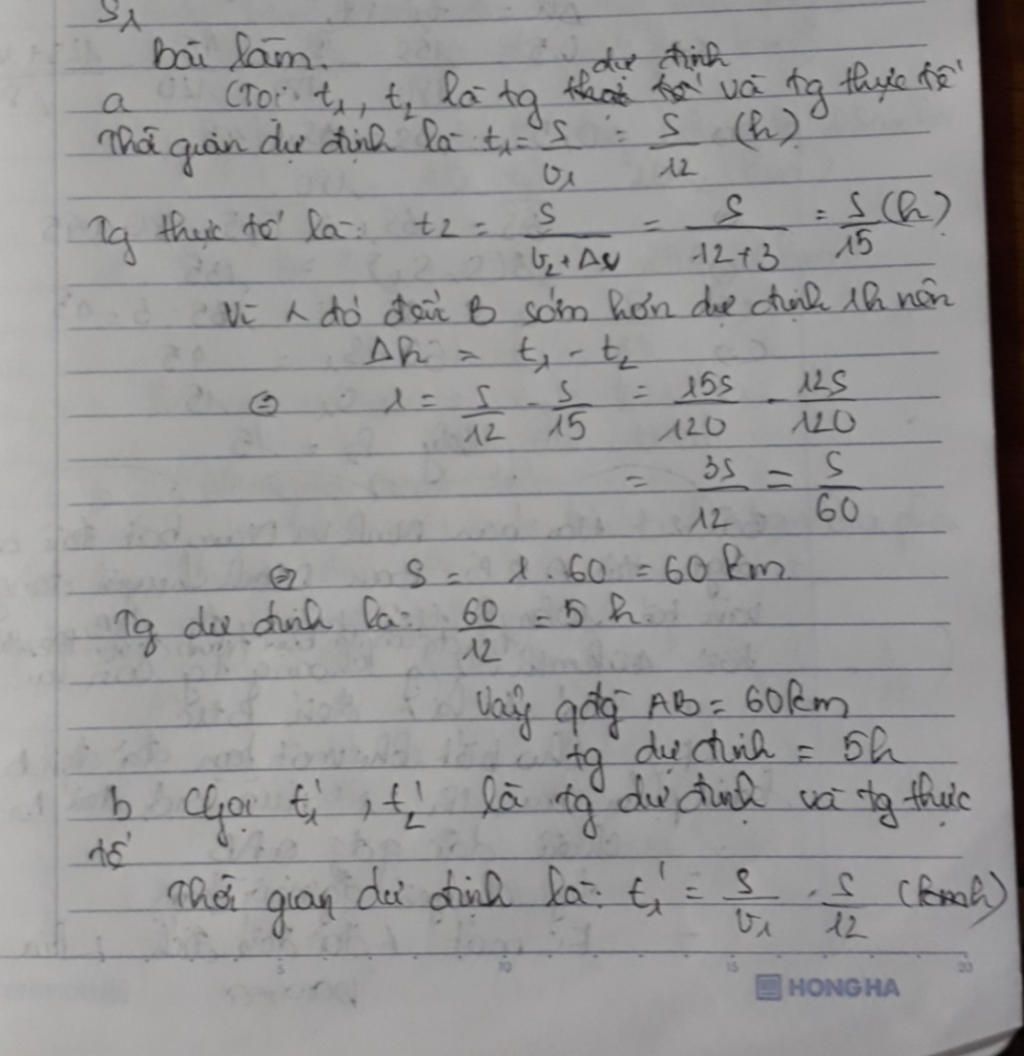 S₁
bài làm.
dự định
a Gọi t₁, t₂ là tg tế và tg thực tế
Thời gian dự định là t₁ = S/v₁ = S/12 (h)
Tg thực tế là: t₂ = S/(v₂+Δv) = S/(12+3) = S/15 (h)
Vì đó đến B sớm hơn dự định 1h nên
Δh = t₁ - t₂
⇔ 1 = S/12 - S/15 = 15S/120 - 12S/120
= 3S/12 = S/60
⇔ S = 1.60 = 60 km
Tg dự định là: 60/12 = 5 h.
Vậy qđg AB = 60km
tg dự định = 5h
b Gọi t₁', t₂' là tg dự định và tg thực
tế
Thời gian dự định là: t₁' = S/v₁ . S/12 (h)
5 10 15 20
HONG HA